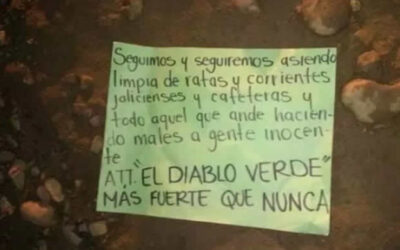 Seguimos y seguiremos asiendo
limpia de ratas y corrientes
jalicienses y cafeteras y
todo aquel que ande hacién-
do males a gente inocen-
te
ATT. "EL DIABLO VERDE"
MÁS FUERTE QUE NUNCA